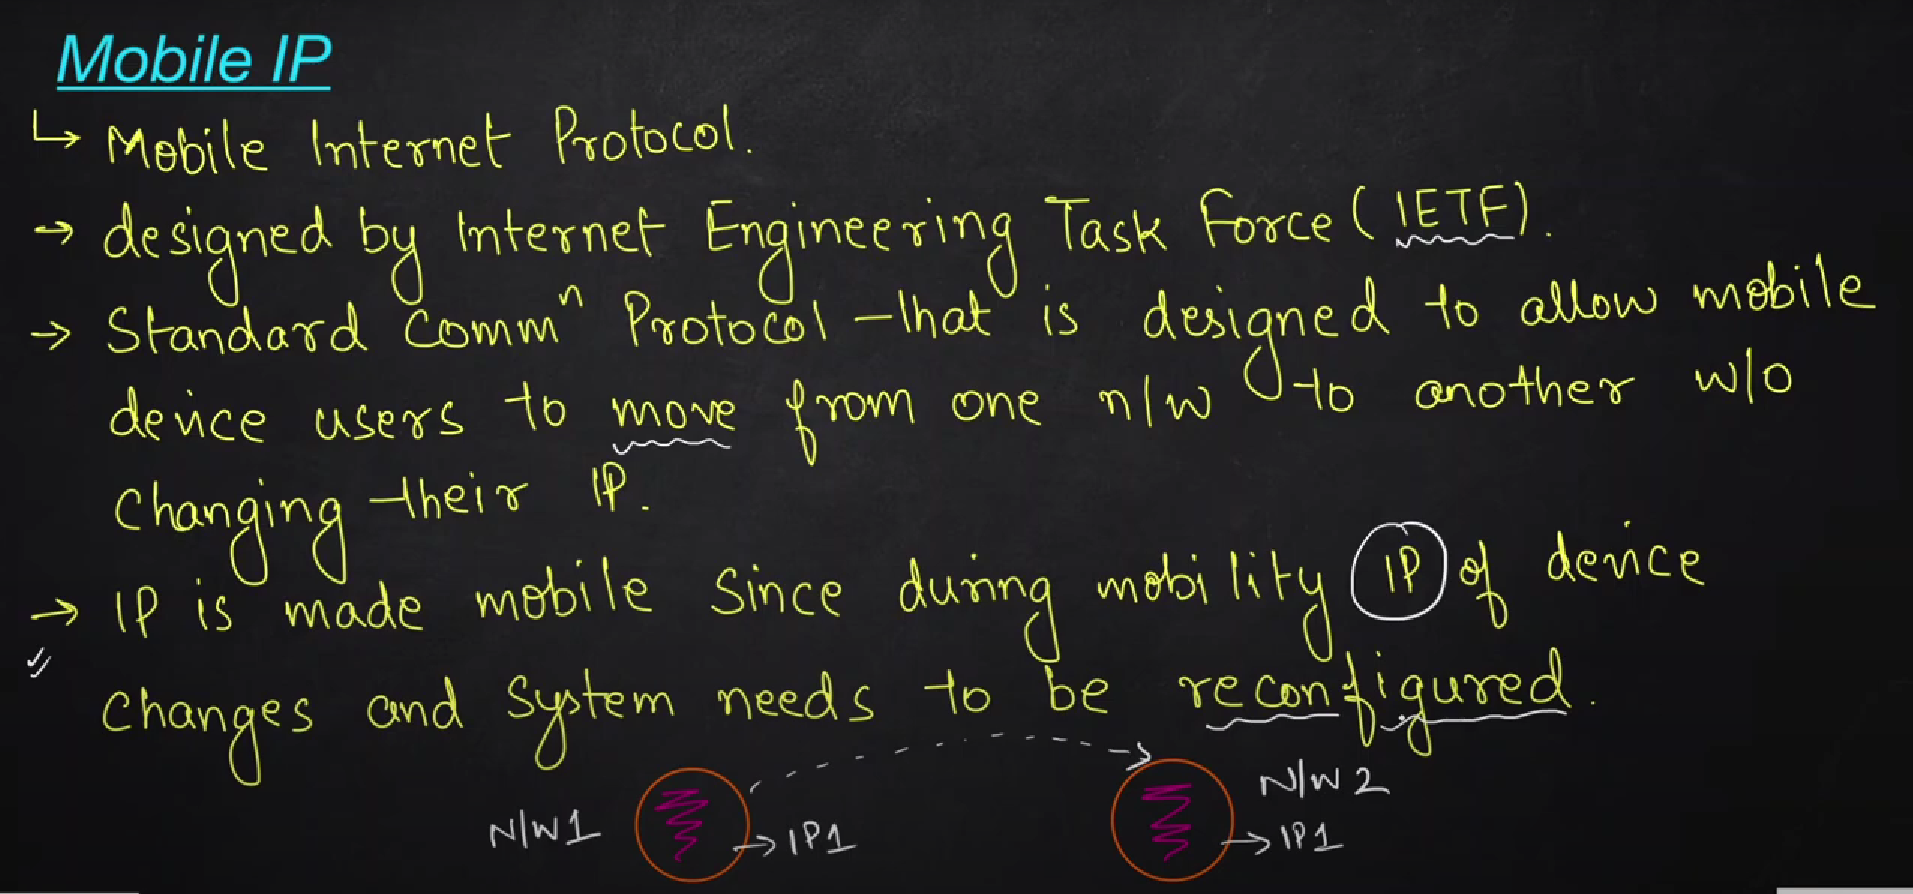 Mobile IP
↳ Mobile Internet Protocol.
→ designed by Internet Engineering Task Force (IETF).
→ Standard Commⁿ Protocol that is designed to allow mobile
device users to move from one n/w to another w/o
changing their IP.
→ IP is made mobile since during mobility IP of device
changes and system needs to be reconfigured.
N/W1 → IP1
N/W 2
→ IP1